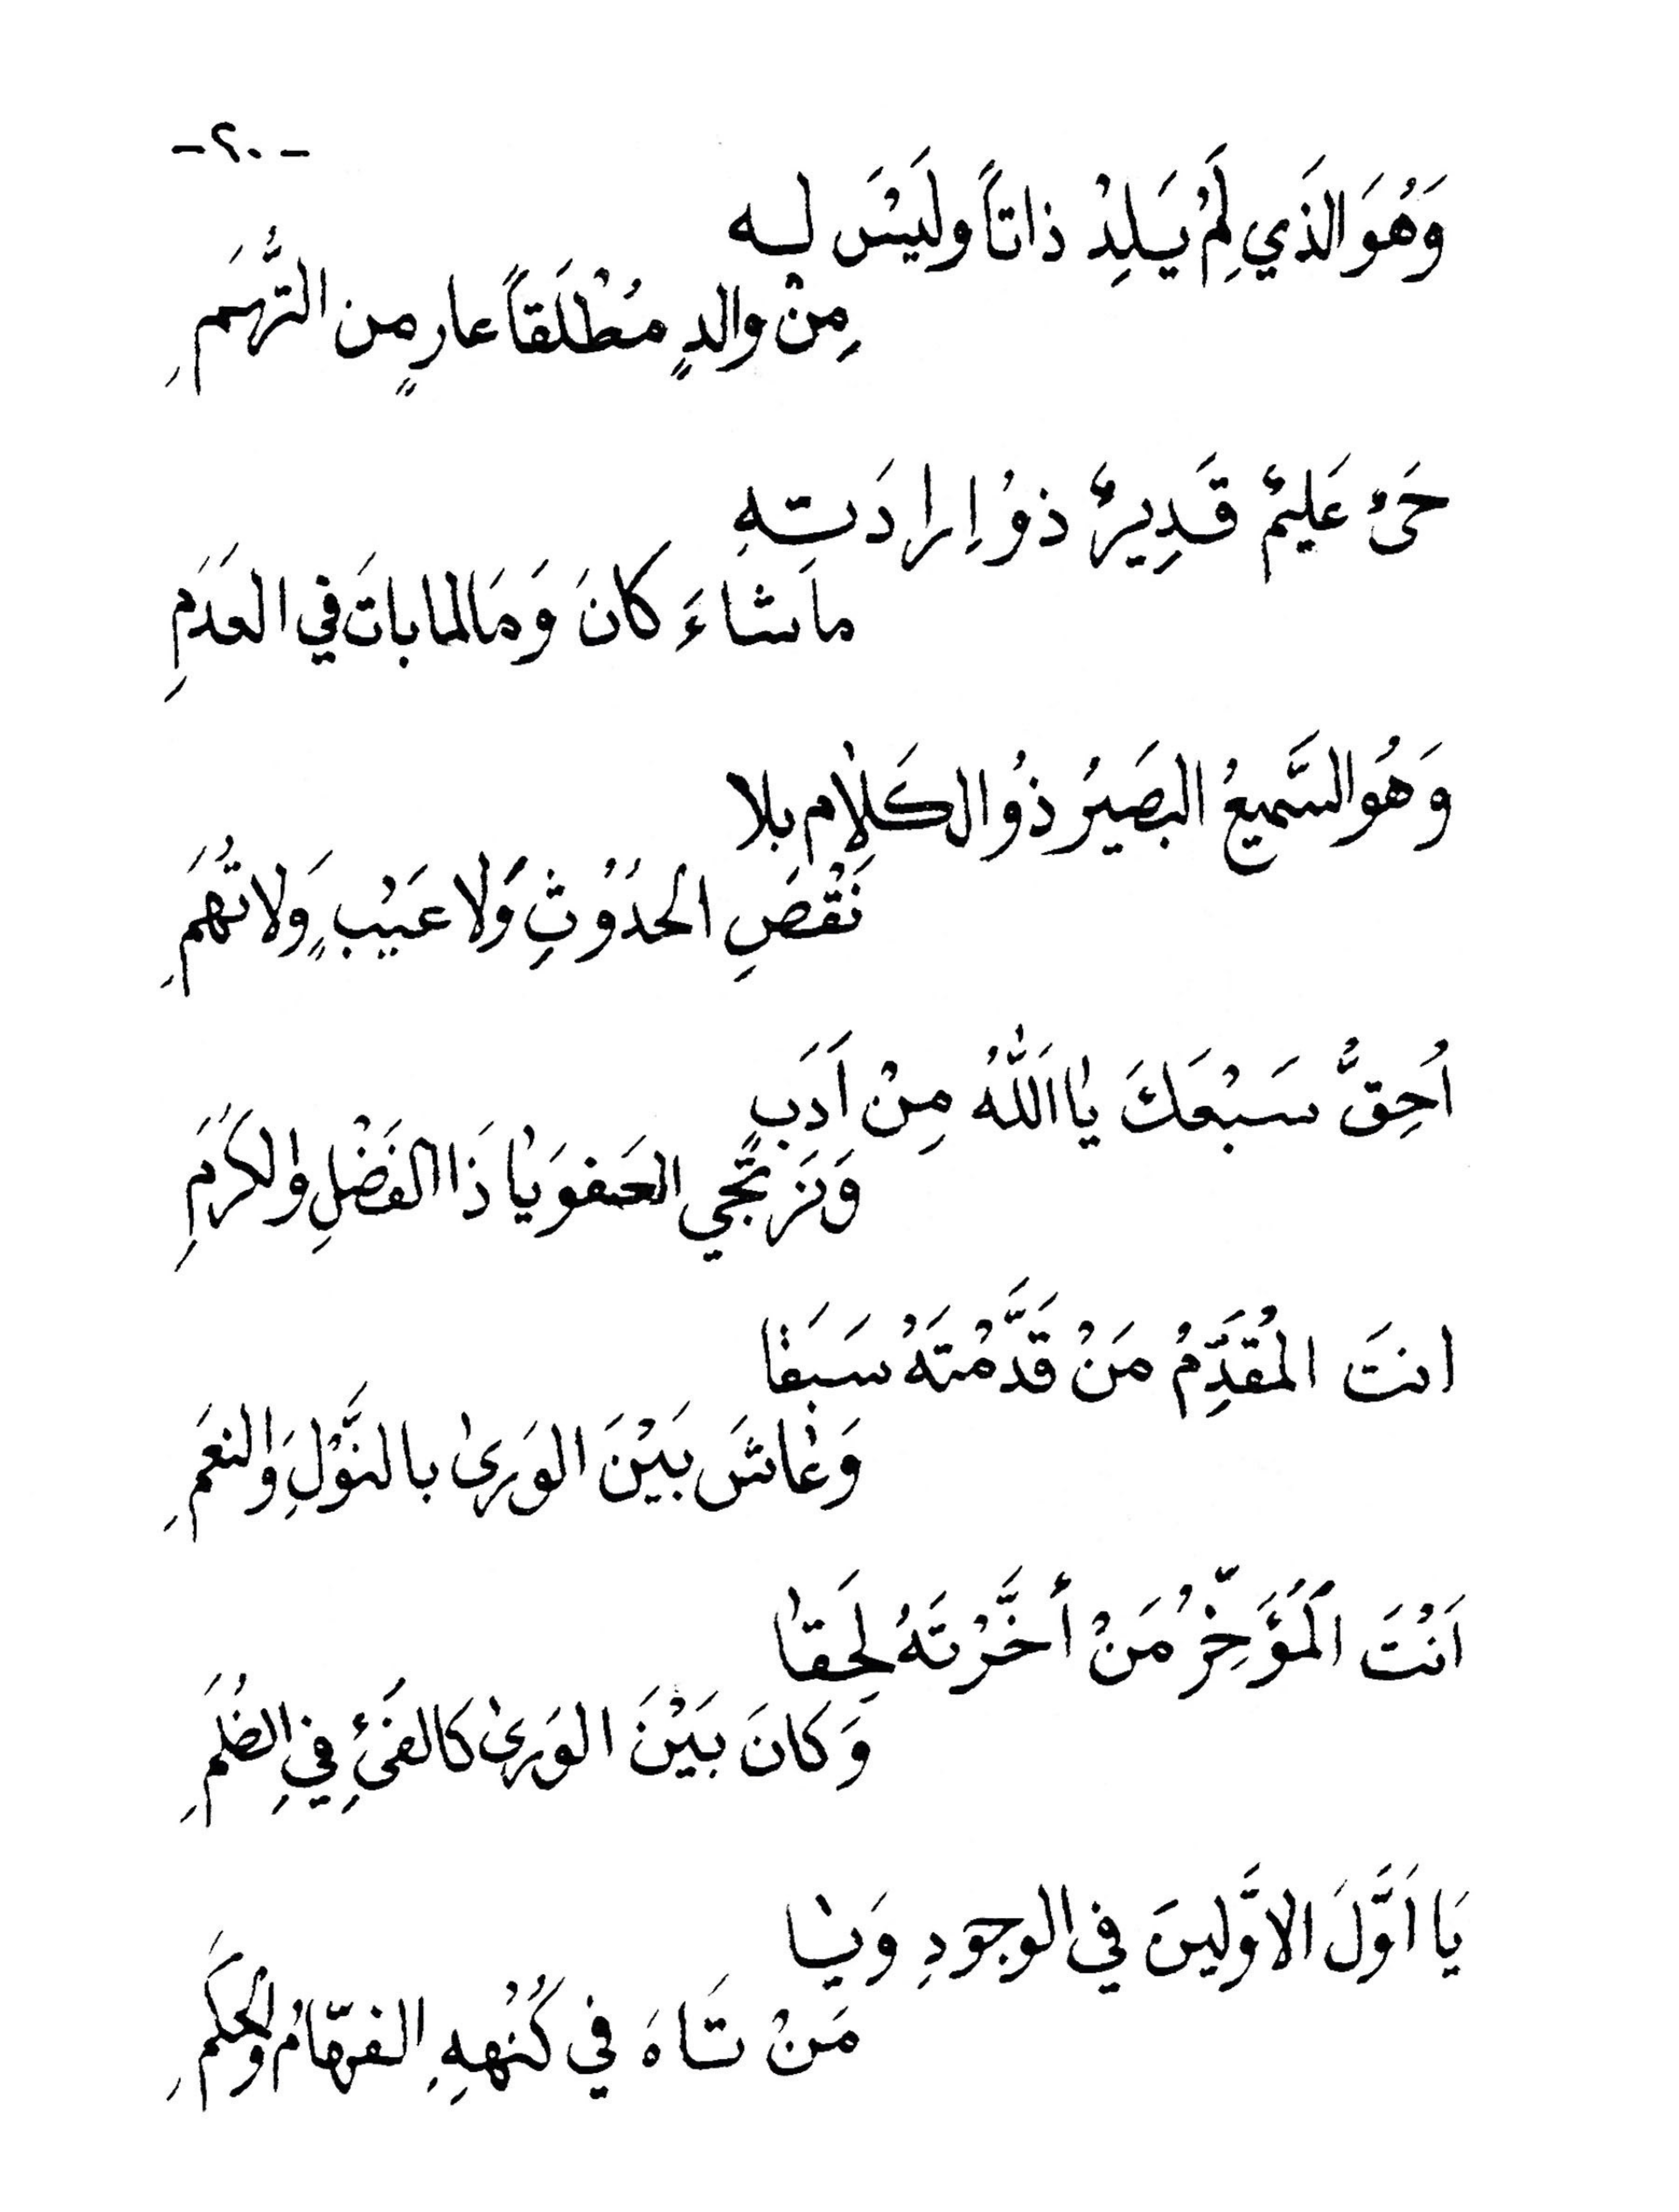 -٢٠-
وَهُوَ الذَي لِمْ يَلِدْ ذاتاً ولَيْسَ لـه
مِنْ والدٍ مُطْلَقاً عارٍ من التُّهَمِ
حَىٌ عَلِيمٌ قَدِيرٌ ذوْ اِرادَتِهِ
ماشاءَ كانَ وَمَا لمابات في العَدَمِ
وَهُوَ السَّميعُ البصَيرُ ذوُ الكَلامِ بلا
نَقْصَِ الحدُوْثِ وَلا عَيْبٍ وَلا تُهَمِ
اُحِقُّ سَبْعَكَ يا اَللهُ مِنْ اَدَبٍ
وَنَرْتَجي العَفوَيا ذَا الفَضْلِ والكَرَمِ
انتَ المُقَدِّمُ مَنْ قَدَّمْتَهُ سَبَقا
وَعٰاشَ بَيْنَ الوَرىٰ بالنَّوْلِ وَالنعَمِ
اَنْتَ المُؤَخِّرُ مَنْ أخَّرْتَهُ لِحَقا
وَكانَ بَيْنَ الوَرىٰ كالفَئِْ فيِ الظُلَمِ
يَا اَوَّلَ الاَوَّلينَ في الوجودِ وَيٰا
مَنْ تَاهَ في كُنْهِهِ الفهّامُ وَالحكَمِ